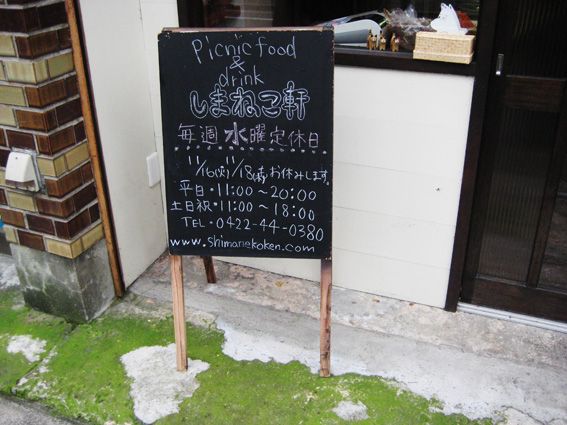 Picnic food
&
drink
しまねこ軒
毎週水曜定休日
11/16(火)11/18(木)お休みします。
平日・11:00~20:00
土日祝・11:00~18:00
TEL・0422-44-0380
www.shimanekoken.com